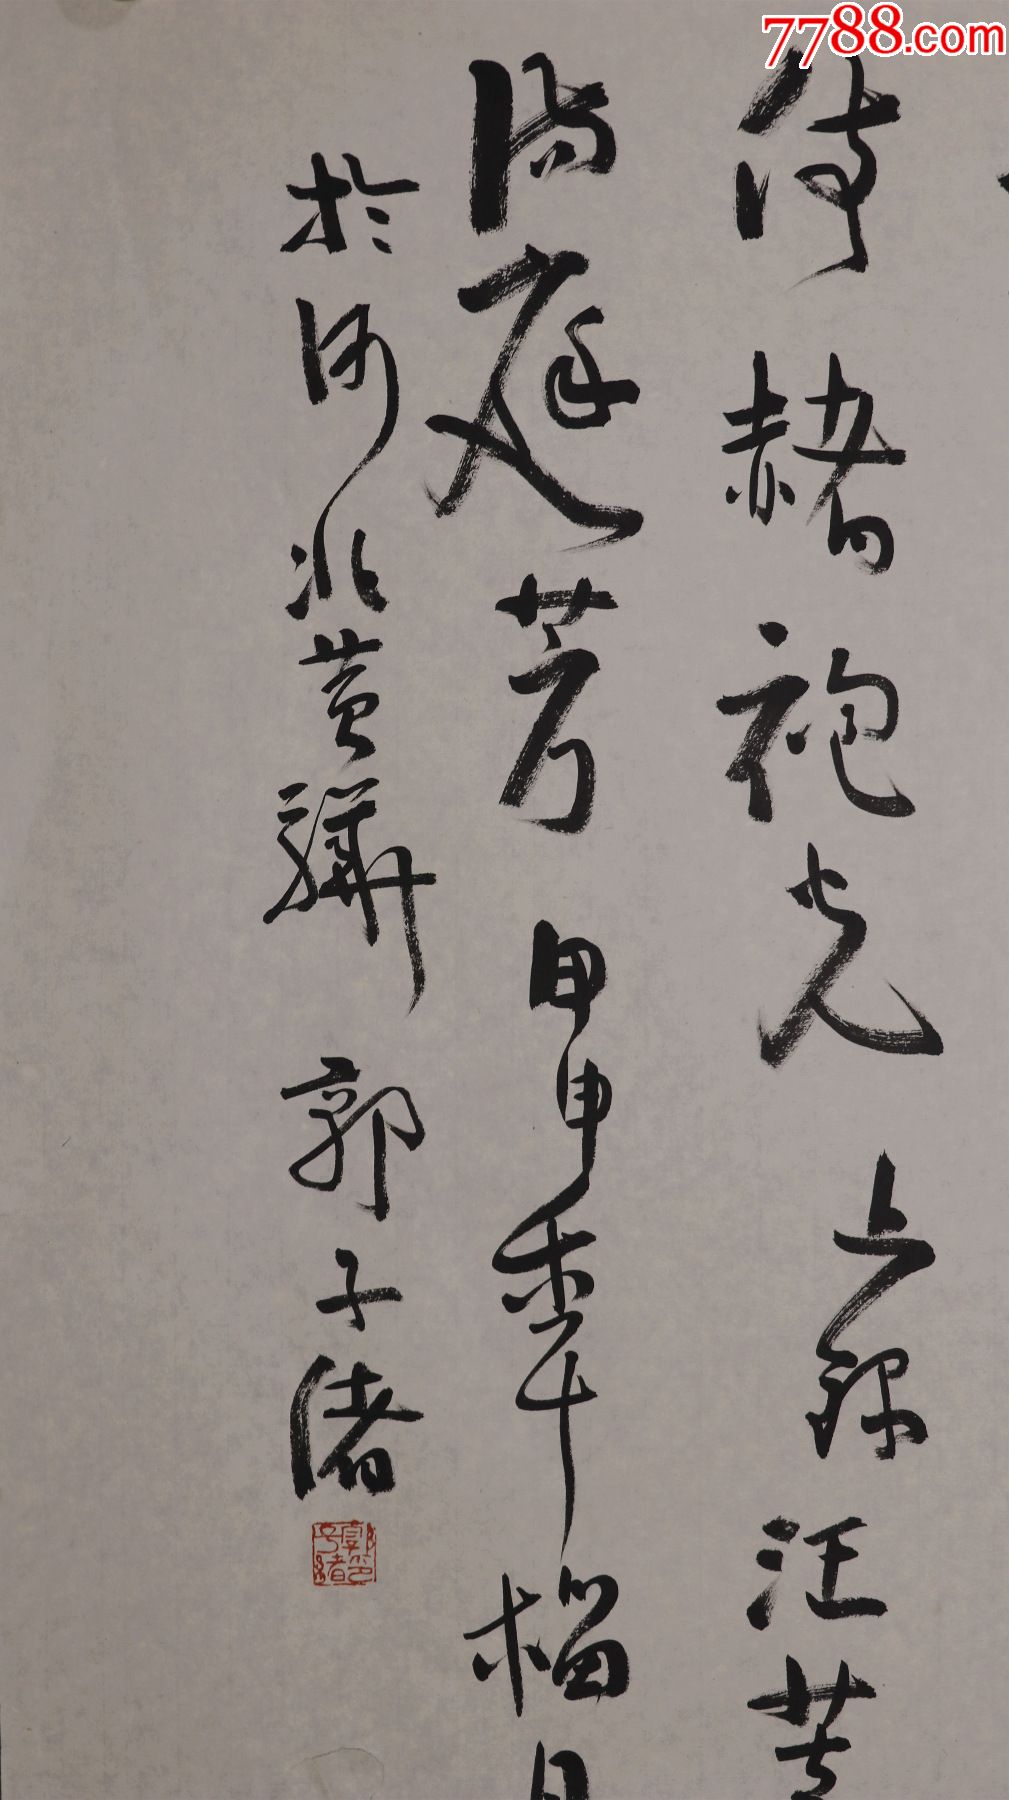 7788.com
侍赭袍光 上錄汪莘
滿庭芳 甲申年榴月
於河北黄驊 郭子緒
郭子緒印